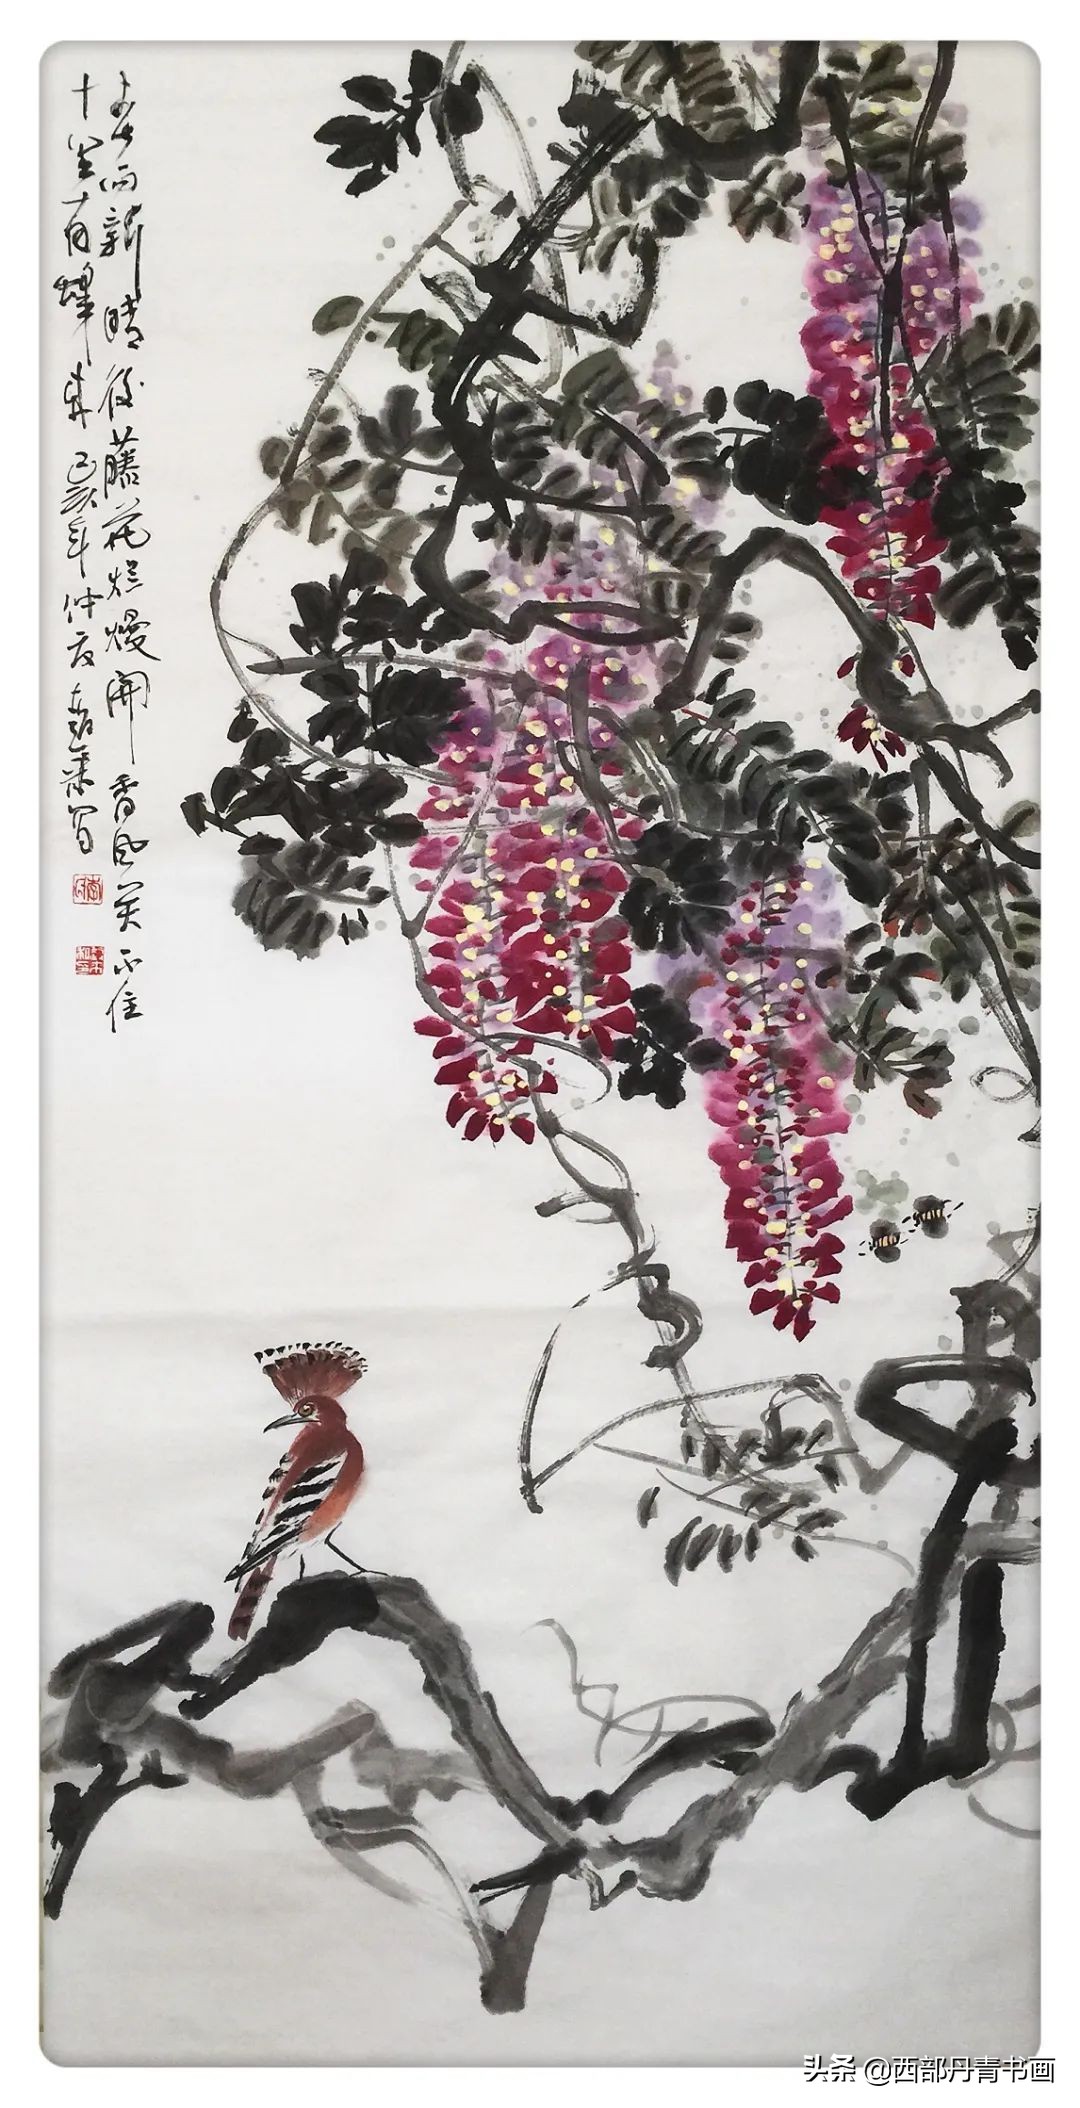 春雨新晴後藤花烂熳開香風关不住
十里有蜂來己亥年仲夏
头条 @西部丹青书画